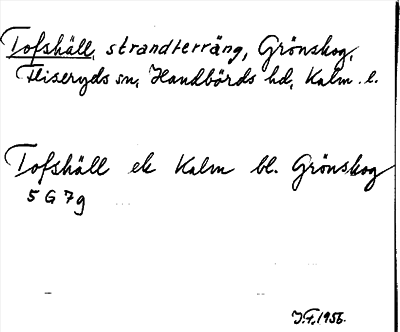 Tofshäll, strandterräng, Grönskog,
Fliseryds sn, Handbörds hd, Kalm. l.
Tofshäll ek Kalm bl. Grönskog
5 G 7g
J.F. 1956.